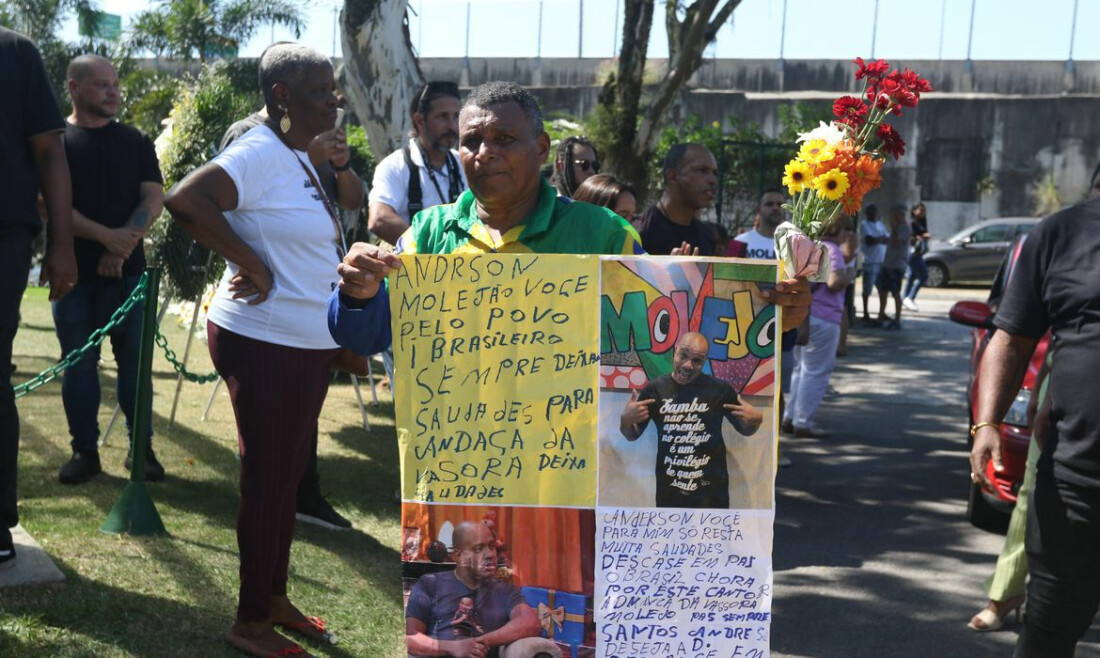 ANDRSON
MOLEJÃO VOCE
PELO POVO
I BRASILEIRO
SEMPRE DEIXAR
SAUDADES PARA
ANDAÇA DA
VASORA DEIXA
SAUDADES
MOLEJO
Samba
não se
aprende
no colégio
é um
privilégio
de quem
sente
ANDERSON VOCE
PARA MIM SO RESTA
MUITA SAUDADES
DESCASE EM PAS
O BRASIL CHORA
POR ESTE CANTOR
DA VASSORA
MOLEJO PAS SEMPRE
SANTOS ANDRES
DESEJA A D.
EM
MOL